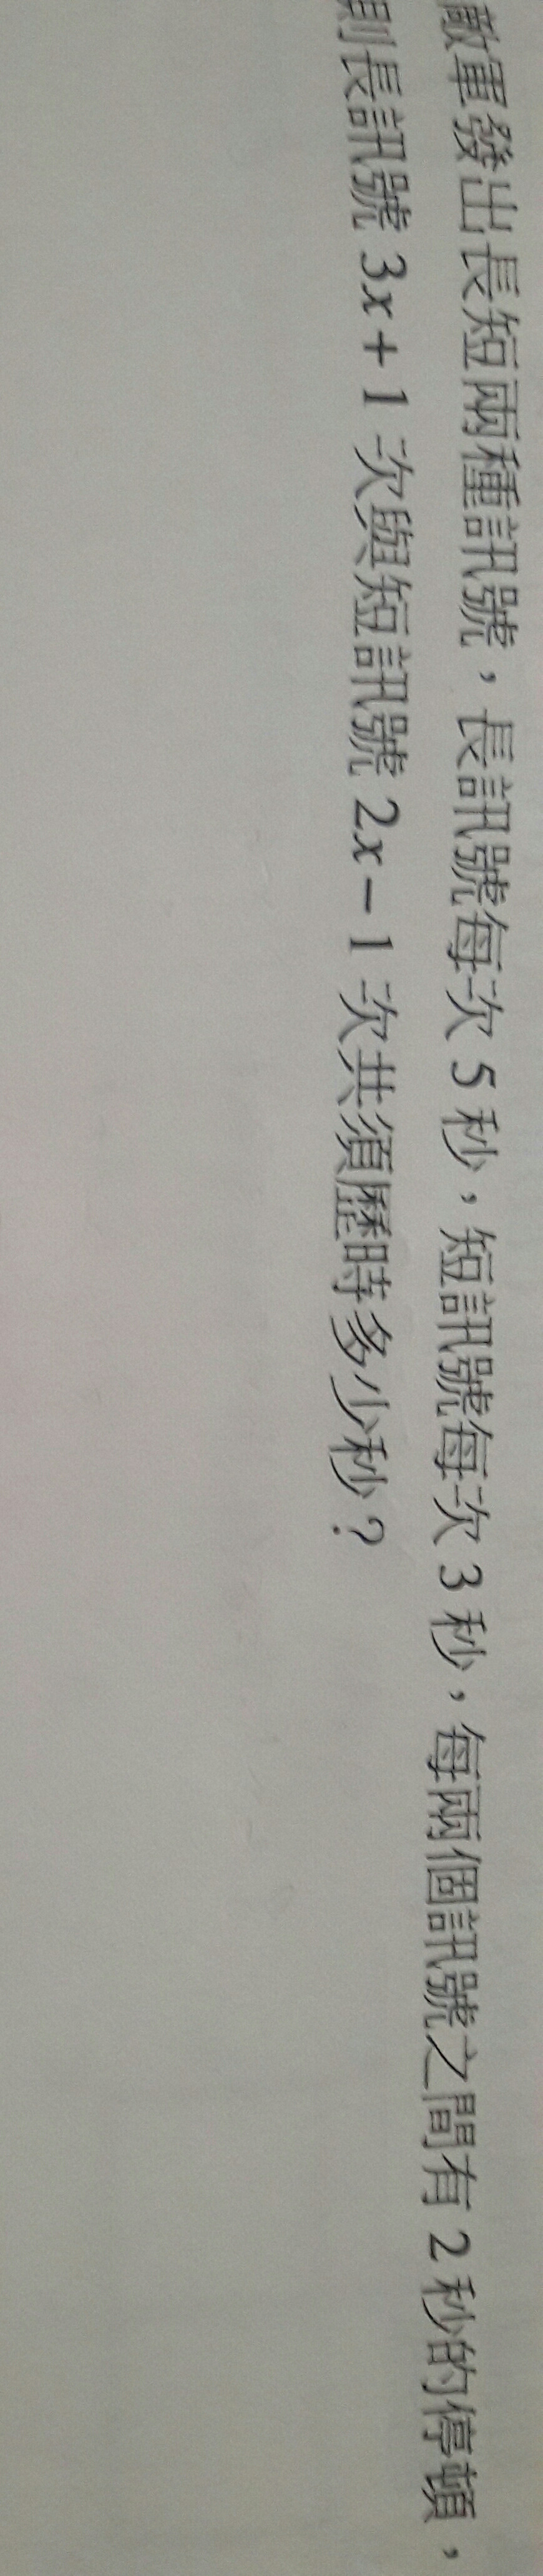 敵軍發出長短兩種訊號，長訊號每次 5 秒，短訊號每次 3 秒，每兩個訊號之間有 2 秒的停頓，
則長訊號 3x+1 次與短訊號 2x−1 次共須歷時多少秒？